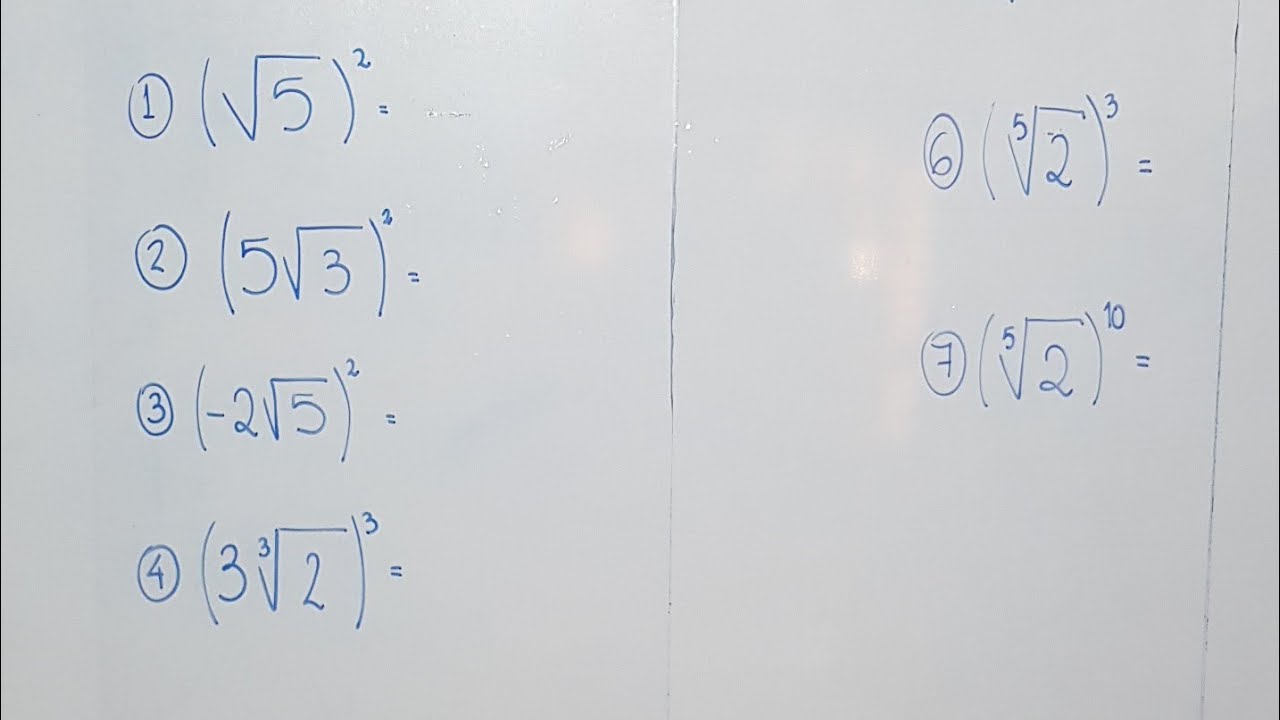 ① (√5)² =
② (5√3)² =
③ (-2√5)² =
④ (3∛2)³ =
⑥ (⁵√2)³ =
⑦ (⁵√2)¹⁰ =